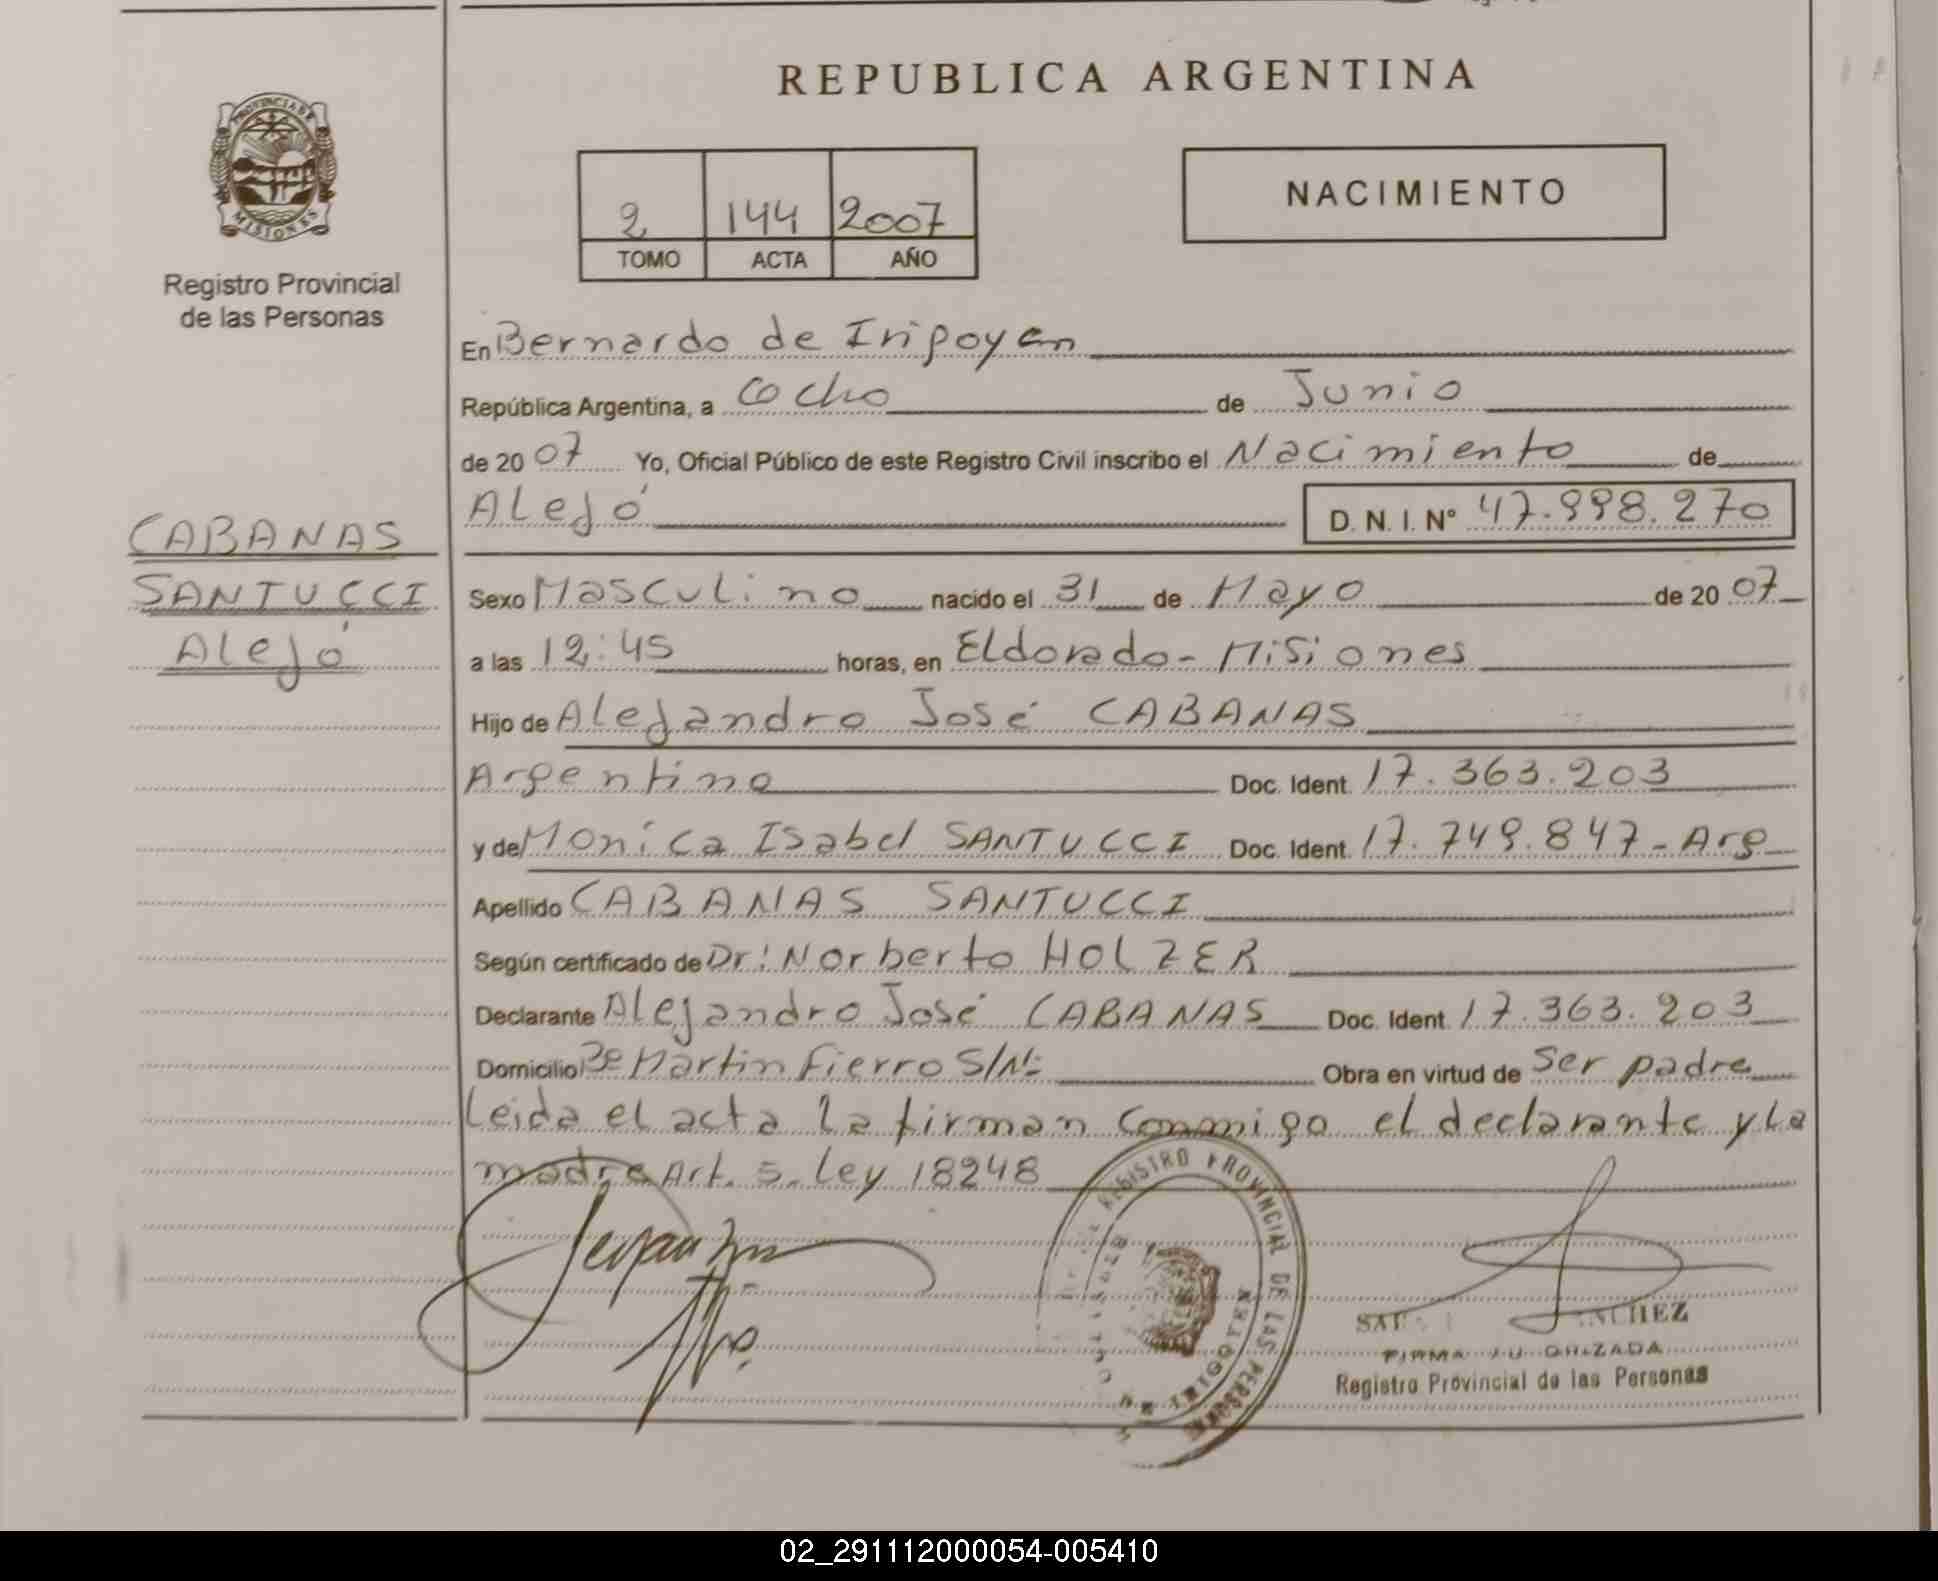 REPUBLICA ARGENTINA
PROVINCIA DE
MISIONES
Registro Provincial
de las Personas
2 144 2007
TOMO ACTA AÑO
NACIMIENTO
En Bernardo de Iripoyen
República Argentina, a Ocho de Junio
de 20 07 Yo, Oficial Público de este Registro Civil inscribo el Nacimiento de
Alejó D. N. I. Nº 47.998.270
CABANAS
SANTUCCI
Alejó
Sexo Masculino nacido el 31 de Mayo de 20 07
a las 12:45 horas, en Eldorado - Misiones
Hijo de Alejandro José CABANAS
Argentino Doc. Ident. 17.363.203
y de Monica Isabel SANTUCCI Doc. Ident. 17.749.847 - Arg
Apellido CABANAS SANTUCCI
Según certificado de Dr: Norberto HOLZER
Declarante Alejandro José CABANAS Doc. Ident. 17.363.203
Domicilio Bº Martin Fierro S/Nº: Obra en virtud de Ser padre
Leida el acta la firman conmigo el declarante y la
madre Art. 5. Ley 18248
REGISTRO PROVINCIAL DE LAS PERSONAS
Registro Provincial de las Personas
02_291112000054-005410